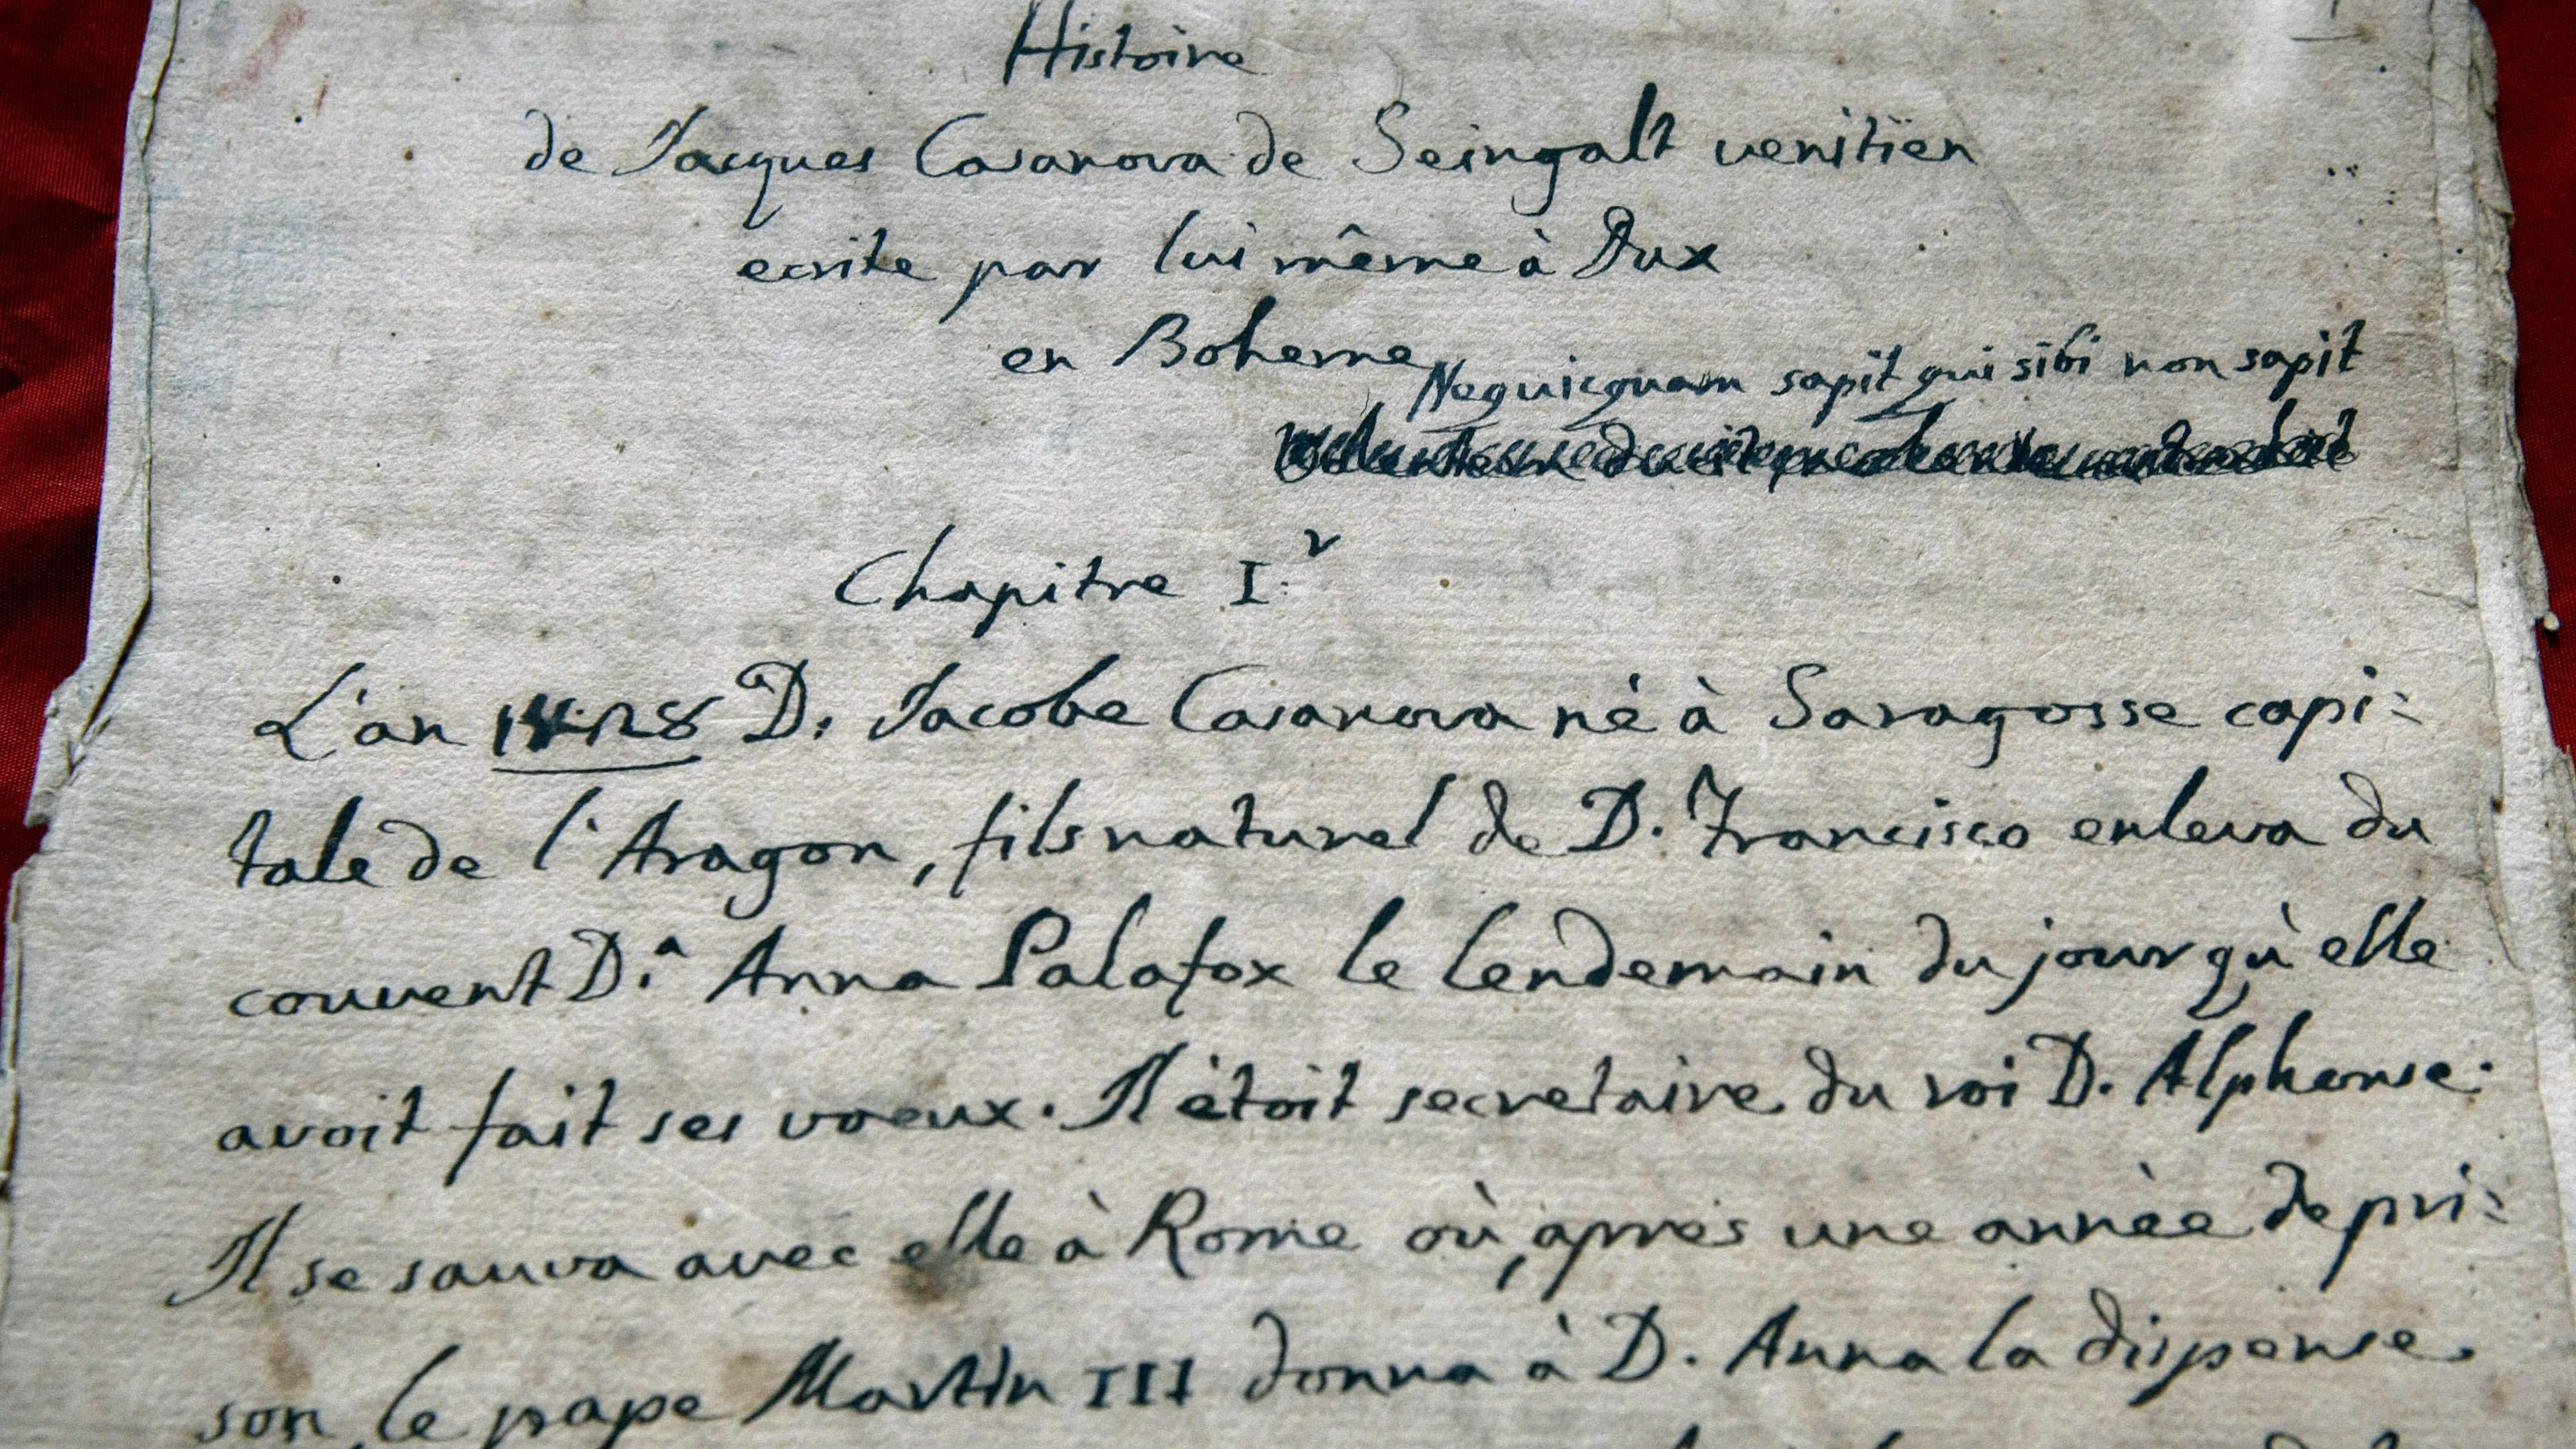 Histoire
de Jacques Casanova de Seingalt venitïen
ecrite par lui même à Dux
en Boheme
Nequicquam sapit qui sibi non sapit
Chapitre I.r
L'an 1428 D. Jacobe Casanova né à Saragosse capi:
tale de l'Aragon, fils naturel de D. Francisco enleva du
couvent D.a Anna Palafox le lendemain du jour qu'elle
avoit fait ses voeux. Il étoit secretaire du roi D. Alphonse.
Il se sauva avec elle à Rome où, apres une année de pri:
son, le pape Martin III donna à D. Anna la dispense